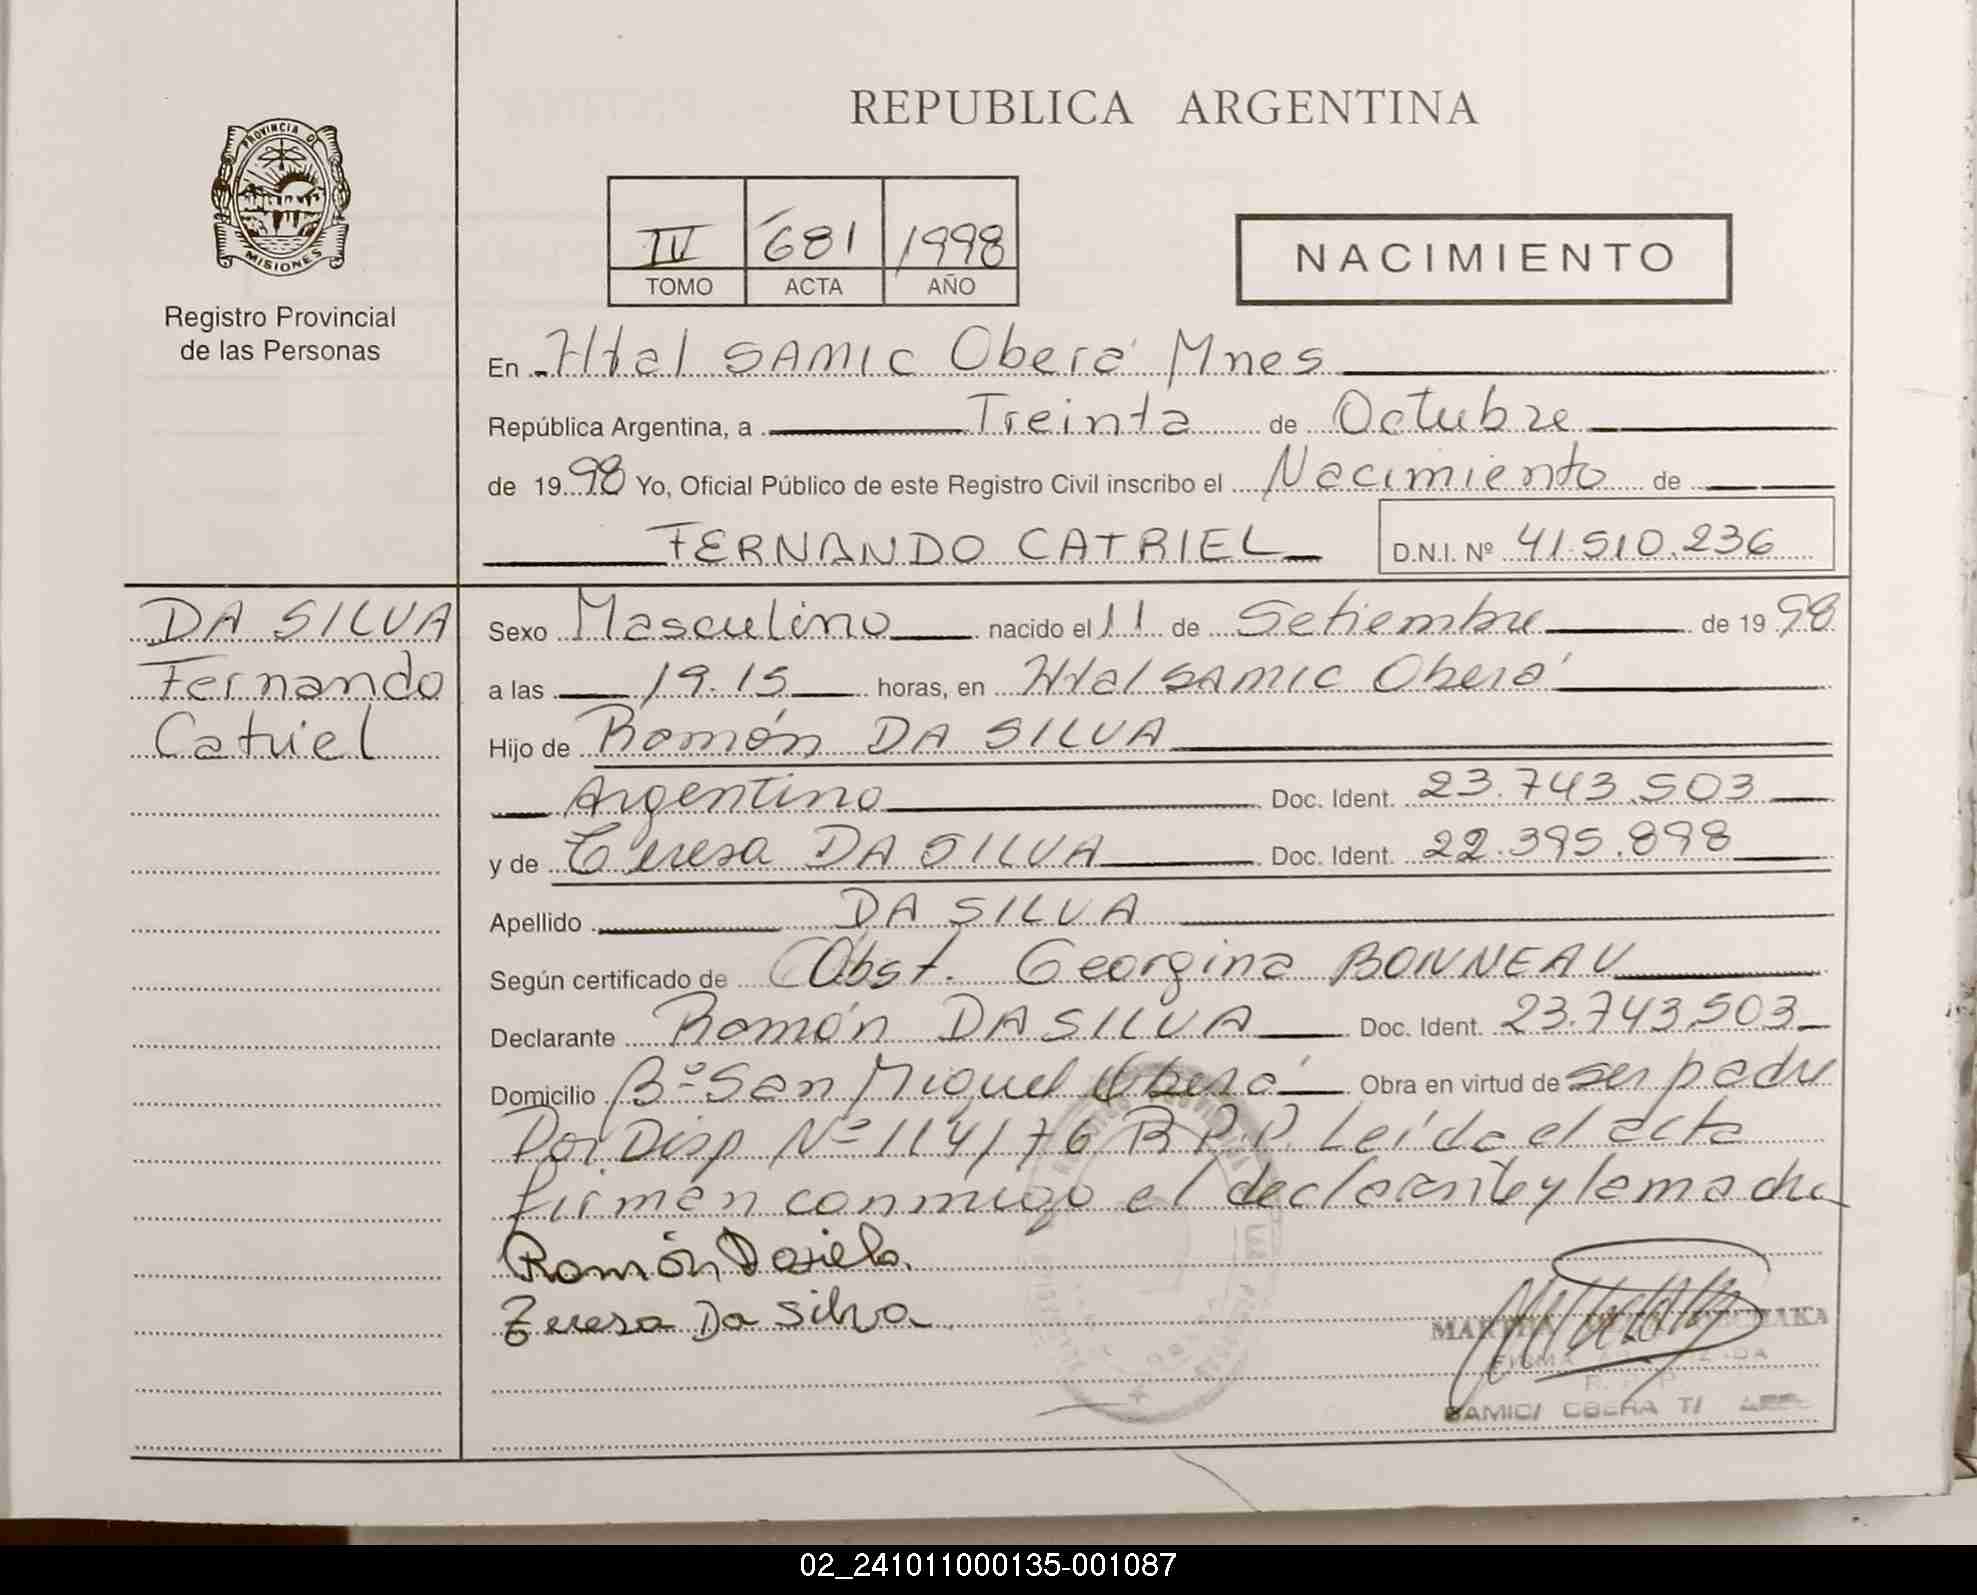 REPUBLICA ARGENTINA
PROVINCIA DE
MISIONES
Registro Provincial
de las Personas
IV 681 1998
TOMO ACTA AÑO
NACIMIENTO
En Htal SAMIC Oberá Mnes
República Argentina, a Treinta de Octubre
de 1998 Yo, Oficial Público de este Registro Civil inscribo el Nacimiento de
FERNANDO CATRIEL D.N.I. Nº 41.510.236
DA SILVA
Fernando
Catriel
Sexo Masculino nacido el 11 de Setiembre de 1998
a las 19.15 horas, en Htal SAMIC Oberá
Hijo de Ramón DA SILVA
Argentino Doc. Ident. 23.743.503
y de Teresa DA SILVA Doc. Ident. 22.395.898
Apellido DA SILVA
Según certificado de Obst. Georgina BONNEAU
Declarante Ramón DA SILVA Doc. Ident. 23.743.503
Domicilio Bº San Miguel Oberá Obra en virtud de ser padre
Por Disp Nº 114/76 R.P.P. Leída el acta
firman conmigo el declarante y la madre
Ramón Dasielo
Teresa Da Silva
FIRMA
R.P.P.
SAMIC/ OBERA
02_241011000135-001087